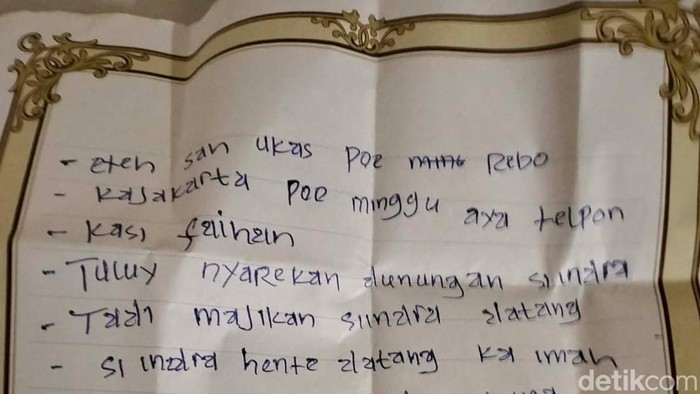 - eteh san ukas poe rebo
- kajakarta poe minggu aya telpon
- kasi faihan
- Tuluy nyarekan dunungan si indra
- Tadi majikan si indra datang
- si indra hente datang ka imah
detikcom